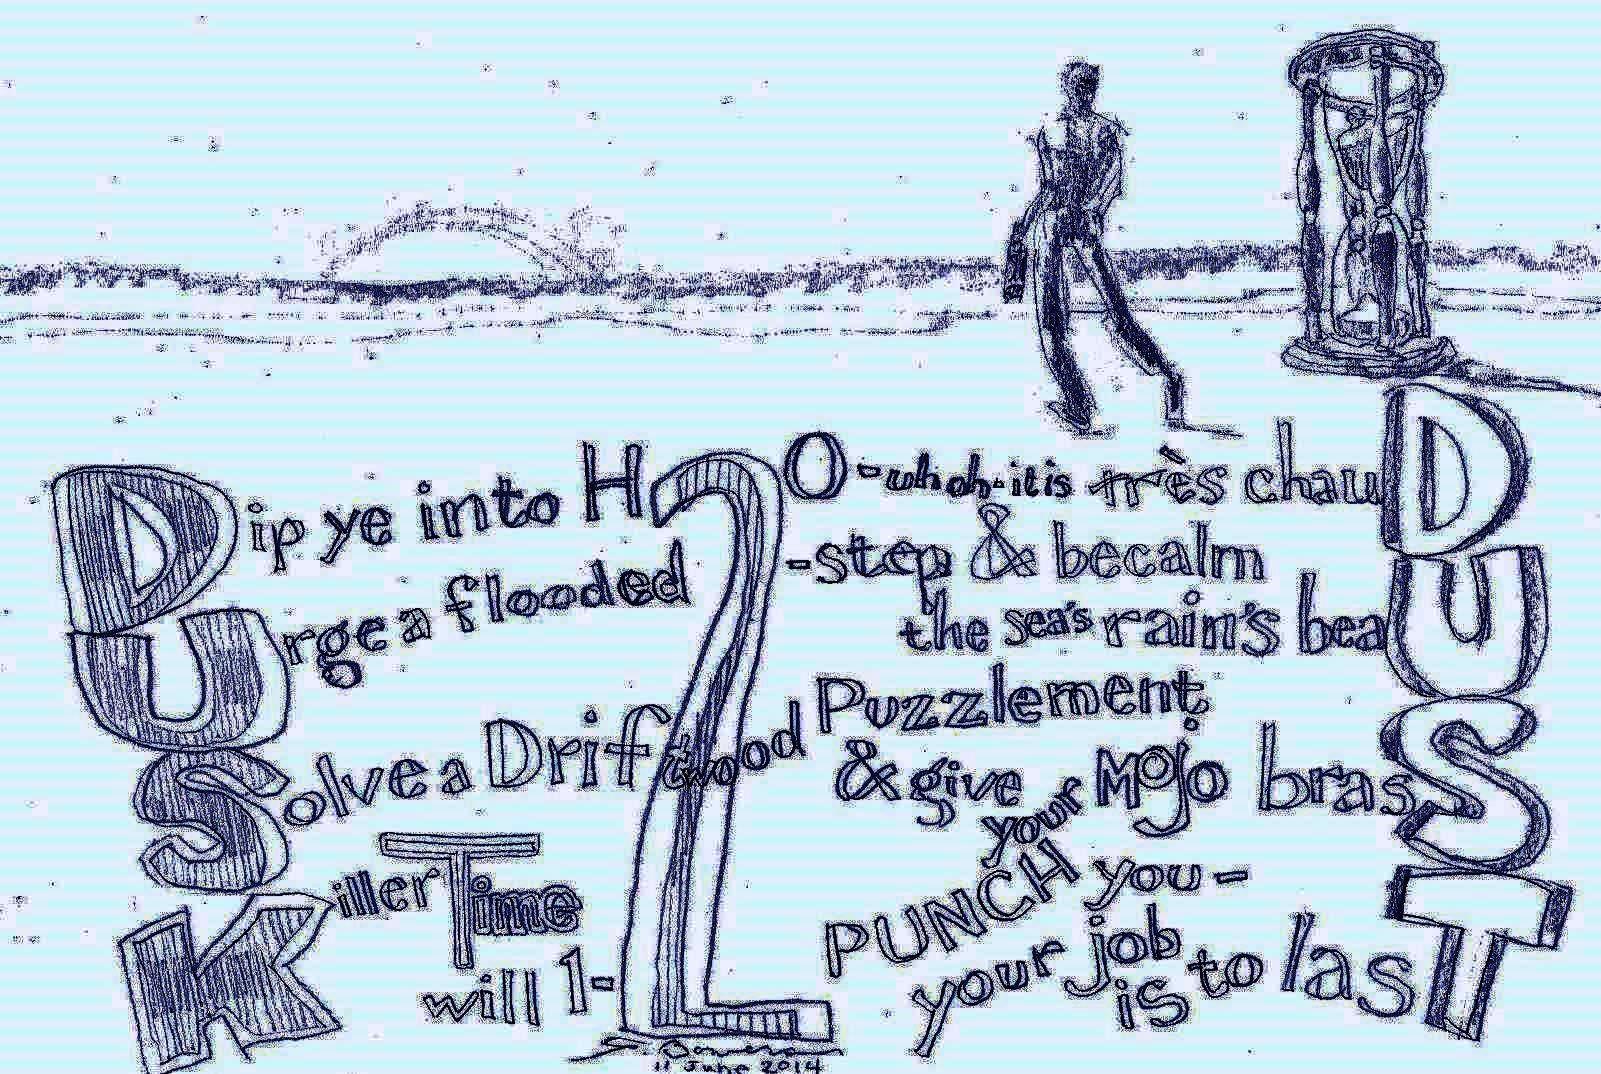 Dip ye into H2O-whoh-it is très chauD
Urge a flooded 2-step & becalm
the sea's rain's beaU
Solve a Driftwood Puzzlement
& give your Mojo brasS
Killer Time will 1-2 PUNCH you-
your job is to lasT
11 June 2014